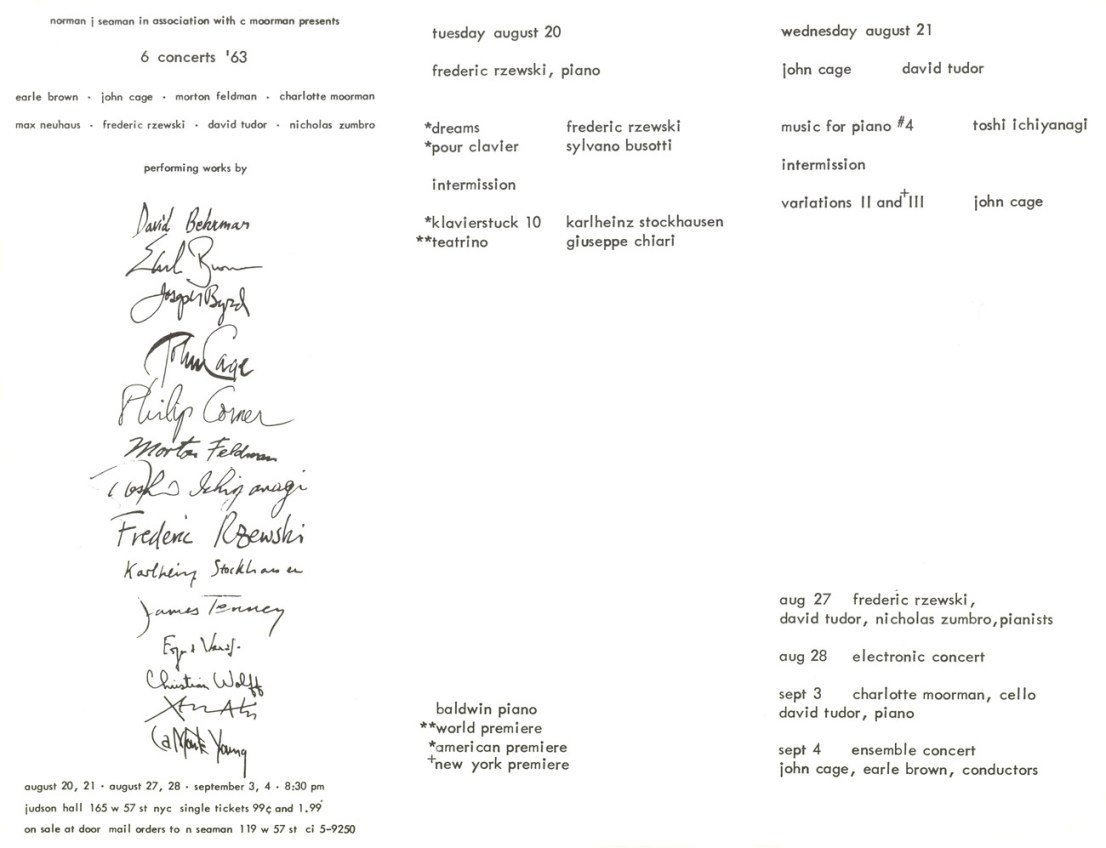 norman j seaman in association with c moorman presents
6 concerts '63
earle brown · john cage · morton feldman · charlotte moorman
max neuhaus · frederic rzewski · david tudor · nicholas zumbro
performing works by
David Behrman
Earle Brown
Joseph Byrd
John Cage
Philip Corner
Morton Feldman
Toshi Ichiyanagi
Frederic Rzewski
Karlheinz Stockhausen
James Tenney
Christian Wolff
La Monte Young
august 20, 21 · august 27, 28 · september 3, 4 · 8:30 pm
judson hall 165 w 57 st nyc single tickets 99¢ and 1.99
on sale at door mail orders to n seaman 119 w 57 st ci 5-9250
tuesday august 20
frederic rzewski, piano
*dreams frederic rzewski
*pour clavier sylvano busotti
intermission
*klavierstuck 10 karlheinz stockhausen
**teatrino giuseppe chiari
baldwin piano
**world premiere
*american premiere
+new york premiere
wednesday august 21
john cage david tudor
music for piano #4 toshi ichiyanagi
intermission
variations II and +III john cage
aug 27 frederic rzewski,
david tudor, nicholas zumbro,pianists
aug 28 electronic concert
sept 3 charlotte moorman, cello
david tudor, piano
sept 4 ensemble concert
john cage, earle brown, conductors